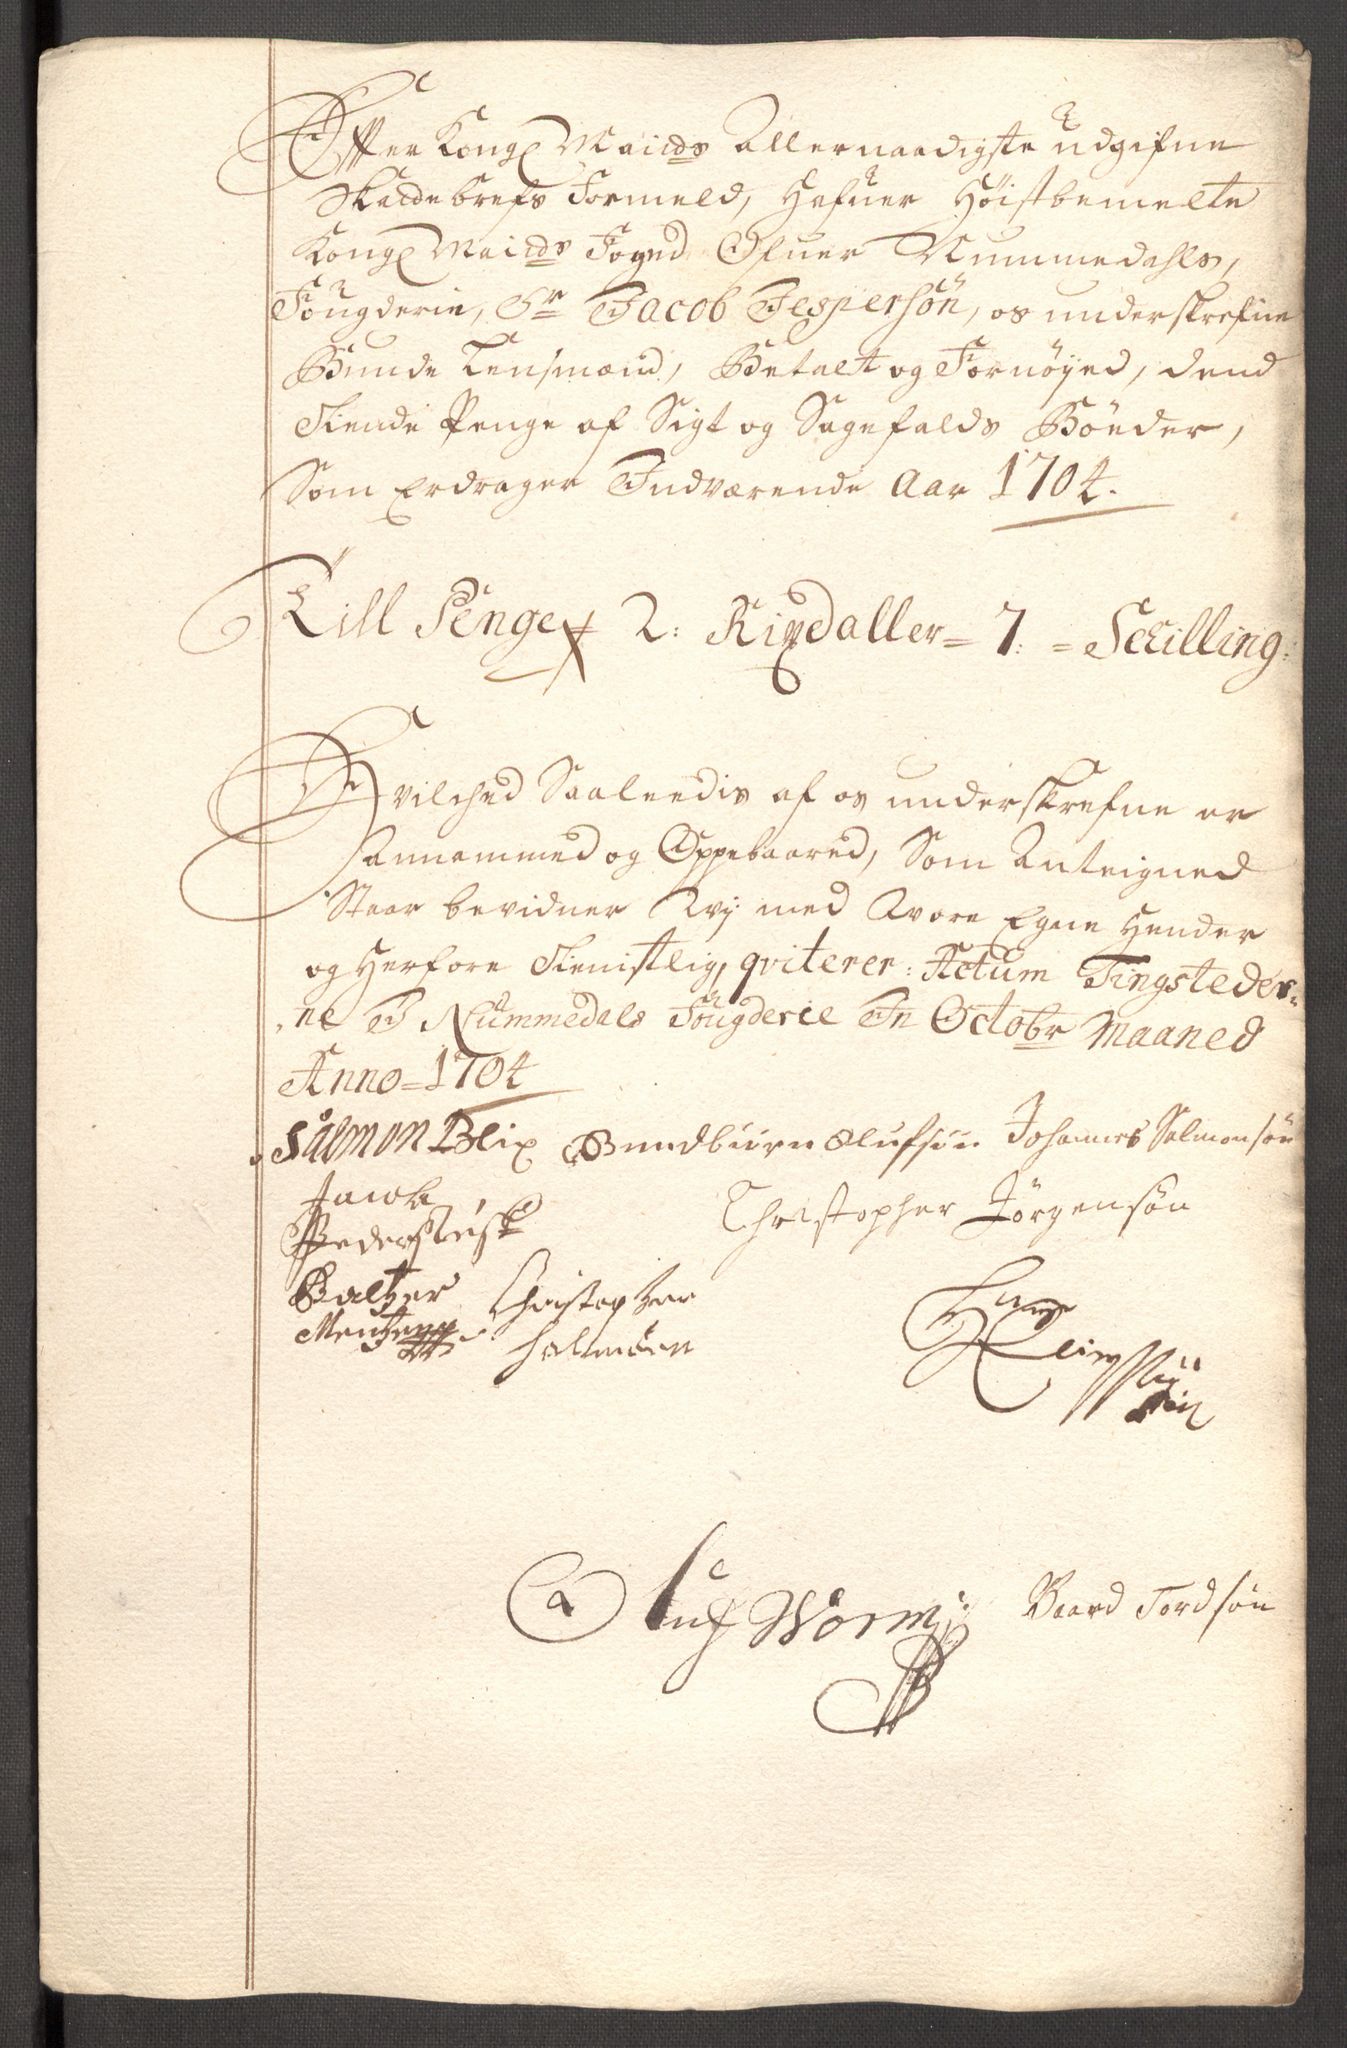 Effter Kongl Maitds Allernaadigste udgifne
Skattebrefs Formeld, Hafuer Höistbemelte
Kongl Maitds Foged Ofuer Nummedahls,
Fougderie, Sr Jacob Jespersön, os underskrefne
Bunde Lensmænd, Betalt og Fornöyed, dend
Tiende Penge af Sigt og Sagefalds Böeder,
Som Erdrager Indværende Aar 1704.
Till Penge 2: Rixdaller = 7: = Schilling:
Hvilched Saaleedis af os underskrefne er
Annammed og Oppebaared, Som Anteigned
Staar bevidner Wij med Wore Egne Hender
og Herfore Tienistlig, qviterer: Actum Tingsteder=
ne I Nummedals Fougderie In Octobr Maaned
Anno = 1704
Salmon Blix Gundbiörn Olufsön Johannes Salmonsön
Jacob
Pedersen Christopher Jörgensön
Baltzer Christopher
Hans
Oluf Worm Baard Tordsön